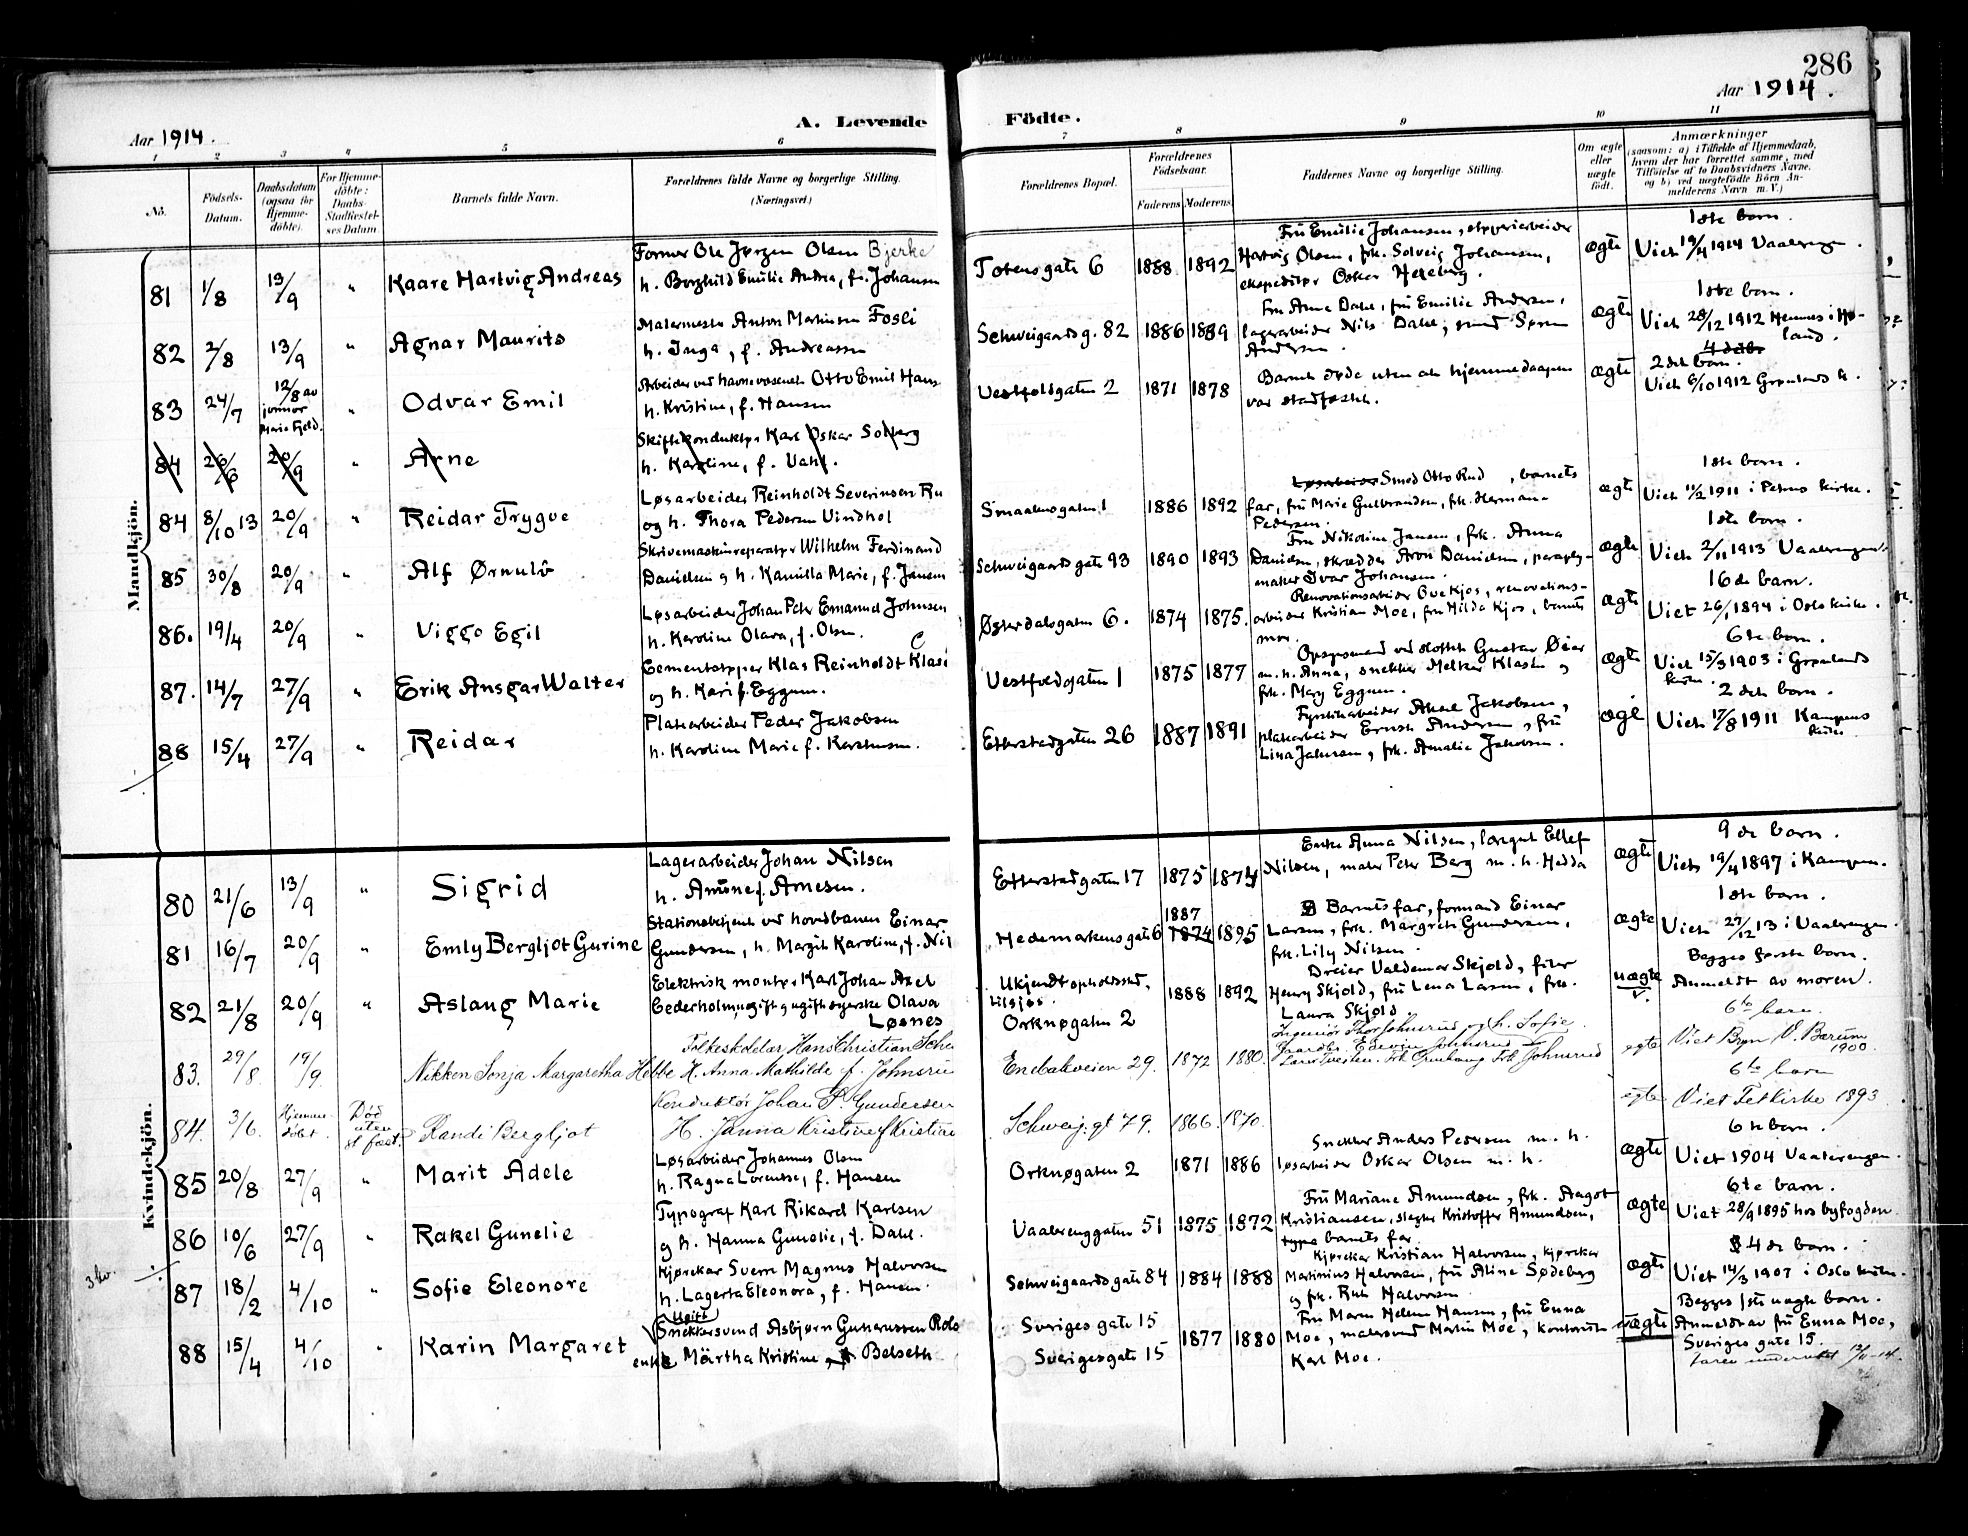 286
Aar 1914.
A. Levende
Fødte.
Aar 1914.
1 2 3 4 5 6
7 8 9 10 11
No.
Fødsels-Datum.
Daabsdatum (ogsaa for Hjemme-døbte).
For Hjemme-døbte: Daabs-Stadfæstel-ses Datum
Barnets fulde Navn.
Forældrenes fulde Navne og borgerlige Stilling.
(Næringsvei.)
Forældrenes Bopæl.
Forældrenes Fødselsaar.
Faderens Moderens
Faddernes Navne og borgerlige Stilling.
Om ægte eller uægte født.
Anmærkninger
(saasom: a) i Tilfælde af Hjemmedaab, hvem der har forrettet samme, med Tilføielse af to Daabsvidners Navne, og b) ved uægtefødte Børn An-melderens Navn m. V.)
Mandkjøn.
81 1/8 13/9 " Kaare Hartvig Andreas
Former Ole Jørgen Olsen Bjerke
h. Borghild Emilie Andrea, f. Johansen
Totensgate 6 1888 1892
Fru Emilie Johansen, støperiarbeider
Hartvig Olsen, frk. Solveig Johansen,
ekspeditør Oskar Hexeberg.
ægte
1ste barn.
Viet 19/4 1914 Vaalerengen.
82 2/8 13/9 " Agnar Maurits
Malermester Anton Martinsen Fosli
h. Inga, f. Andreassen
Schweigaardsg. 82 1886 1889
Fru Anna Dahl, fru Emilie Andersen,
lagerarbeider Nils Dahl, smed Søren
Andersen.
ægte
1ste barn.
Viet 28/12 1912 Hemnes i Hø-
land.
83 24/7 12/8 av jormor Marie Fjeld. " Odvar Emil
Arbeider ved havnevæsenet Otto Emil Hans
h. Kristine, f. Hansen
Vestfoldgaten 2 1871 1878
Barnet døde uten at hjemmedaapen
var stadfæstet.
ægte
4 de b.
2 det barn.
Viet 6/10 1912 Grønlands k.
84 26/6 20/9 " Arne
Skiftekonduktør Karl Oskar Solberg
h. Karoline, f. Dahl.
84 8/10 13 20/9 " Reidar Trygve
Løsarbeider Reinholdt Severinsen Ru
og h. Thora Pedersen Vindhol
Smaalensgaten 1 1886 1892
Løsarbeider Smed Otto Rud, barnets
far, fru Marie Gulbrandsen, frk. Herman-
Pedersen.
ægte
1ste barn.
Viet 11/2 1911 i Petrus kirke.
85 30/8 20/9 " Alf Ørnulv
Skrivemaskinreparatør Wilhelm Ferdinand
Danielsen og h. Kamilla Marie, f. Jansen
Schweigaardsgate 93 1890 1893
Fru Nikoline Jansen, frk. Anna
Danielsen, skrædder Aron Danielsen, paraply-
maker Ivar Johansen.
ægte
1ste barn.
Viet 2/11 1913 Vaalerengen.
86. 19/4 20/9 " Viggo Egil
Løsarbeider Johan Peter Emanuel Johnsen
h. Karoline Olava, f. Olsen.
Østerdalsgaten 6. 1874 1875.
Renovationsarbeider Ove Kjos, renovations-
arbeider Kristian Moe, fru Hilda Kjos, barnets
mor.
ægte
16 de barn.
Viet 26/1 1894 i Oslo kirke.
87. 14/7 27/9 " Erik Ansgar Walter
Cementstøper Klas Reinholdt Klasé
C
og h. Kari f. Eggum.
Vestfoldgaten 1 1875 1877
Opsynsmand ved slottet Gustav Øier
m. h. Anna, snekker Melker Klasen og
frk. Mary Eggum.
ægte
6te barn.
Viet 15/3 1903 i Grønlands
kirke.
88 15/4 27/9 " Reidar
Platearbeider Peder Jakobsen
h. Karoline Marie f. Karstensen.
Etterstadgaten 26 1887 1891
Fyrstikarbeider Aksel Jakobsen,
platearbeider Ernst Andersen, fru
Lina Jahnsen, frk. Amalie Jakobsen.
ægte
2 det barn.
Viet 17/8 1911 Kampens
kirke
Kvindekjøn.
80 21/6 13/9 " Sigrid
Lagerarbeider Johan Nilsen
h. Amune f. Arnesen.
Etterstadgaten 17 1875 1874
Enke Anna Nilsen, lærgut Ellef
Nilsen, maler Peter Berg m. h. Hedda
ægte
9 de barn.
Viet 19/4 1897 i Kampen.
81 16/7 20/9 " Emly Bergljot Gurine
Stationsbetjent ved hovedbanen Einar
Gundersen, h. Margit Karoline, f. Nil
Hedemarkensgate 6 1887 1874 1895
Barnets far, formand Einar
Larsen, frk. Margreth Gundersen,
frk. Lily Nilsen.
ægte
1ste barn.
Viet 27/12 13 i Vaalerengen.
82 21/8 20/9 " Aslaug Marie
Elektrisk montør Karl Johan Axel
Cederholm, ugift og ugift syerske Olava
Løsnes
Ukjendt opholdssted,
tilsjøs.
Orknøgaten 2
1888 1892
Dreier Valdemar Skjold, filer
Henry Skjold, fru Lena Larsen, frk.
Laura Skjold
uægte
Begges første barn.
Anmeldt av moren.
83. 29/8 19/9. Nikken Sonja Margaretha Hebbe
Folkeskolelær Hans Christian Sche
H. Anna Mathilde f. Johnsrud
Enebakveien 29. 1872 1880.
Ingeniør Thor Johnsrud og h. Sofie
egte
6te barn.
Viet Bryn V. Bærum
1900.
84. 3/6. Hjemme-døbt. Død uten st.fæst. Randi Bergljot
Konduktør Johan P. Gundersen
H. Janna Kristine f Kristine
Schweig. gt 79. 1866. 1870.
egte
6te barn
Viet Fetkirke 1893
85 20/8 27/9 " Marit Adele
Løsarbeider Johannes Olsen
h. Ragna Lorentse, f. Hansen
Orknøgaten 2 1871 1886
Snekker Anders Pedersen m. h.
løsarbeider Oskar Olsen m. h.
ægte
6te barn.
Viet 1904 Vaalerengen.
86 10/6 27/9 " Rakel Gunelie
Typograf Karl Rikard Karlsen
og h. Hanna Gunelie, f. Dahl.
Vaalerenggaten 51 1875 1872
Fru Mariane Amundsen, frk. Aagot
Kristiansen, slagter Kristoffer Amundsen,
typo barnets far.
ægte
6te barn.
Viet 28/9 1895 hos byfogden
87 18/2 4/10 " Sofie Eleonore
3 kv.
Kjørekar Sverre Magnus Halvorsen
h. Lagerta Eleonora, f. Hansen.
Schweigaardsgate 84 1884 1888
Kjørekar Kristian Halvorsen, kjørekar
Martinius Halvorsen, fru Aline Sødeberg
og frk. Ruth Halvorsen.
ægte
4 de barn.
Viet 14/3 1907 i Oslo kirke.
88 15/4 4/10 " Karin Margaret
Ugift
Snekkersvend Asbjørn Gunerussen Rols
enke Märtha Kristine Belseth
Sveriges gate 15
Sverigesgate 15
1877 1880
Fru Maren Helene Hansen, fru Enna
Moe, malersvend Martin Moe, kontorist
Karl Moe.
uægte
Begges 1ste uægte barn.
Anmeldt av fru Enna Moe,
Sveriges gate 15.
faren underrettet 12/11-14.